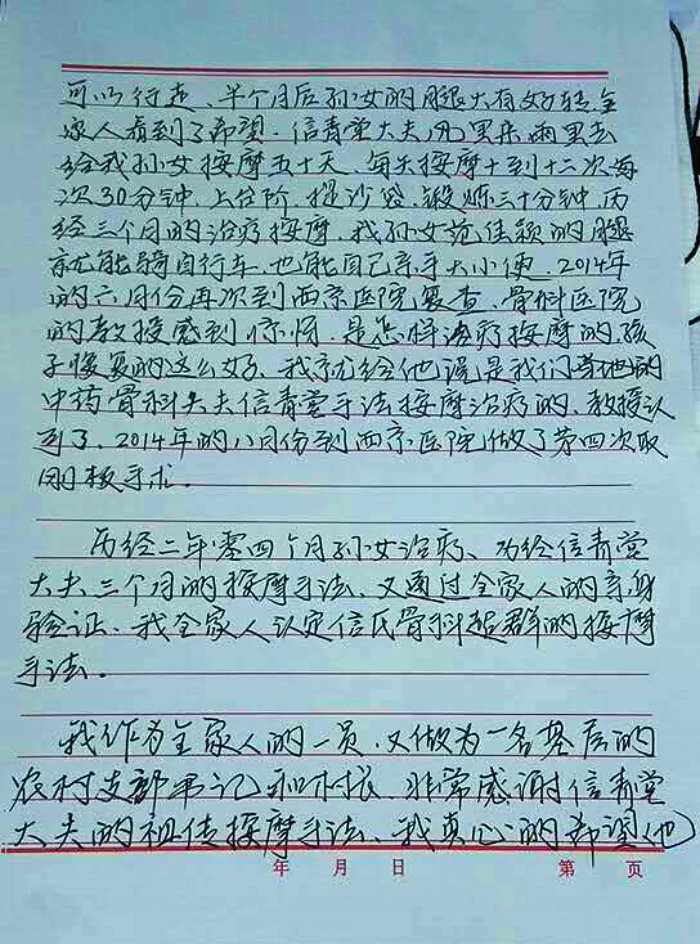 可以行走、半个月后孙女的腿大有好转全
家人看到了希望.信青堂大夫风里来雨里去
给我孙女按摩五十天、每天按摩十到十二次每
次30分钟、上台阶、提沙袋、锻炼三十分钟、历
经三个月的治疗按摩、我孙女范佳颖的腿
就能骑自行车、也能自己亲手大小便、2014年
的六月份再次到西京医院复查、骨科医院
的教授感到惊呀、是怎样治疗按摩的、孩
子恢复的这么好、我就给他说是我们当地的
中药骨科大夫信青堂手法按摩治疗的、教授认
到了、2014年的八月份到西京医院做了第四次取
刚板手术。
历经二年零四个月孙女治疗、功经信青堂
大夫三个月的按摩手法、又通过全家人的亲身
验证、我全家人认定信氏骨科超群的按摩
手法。
我作为全家人的一员、又做为一名基层的
农村支部书记和村长、非常感谢信青堂
大夫的祖传按摩手法、我真心的希望他
年 月 日 第 页